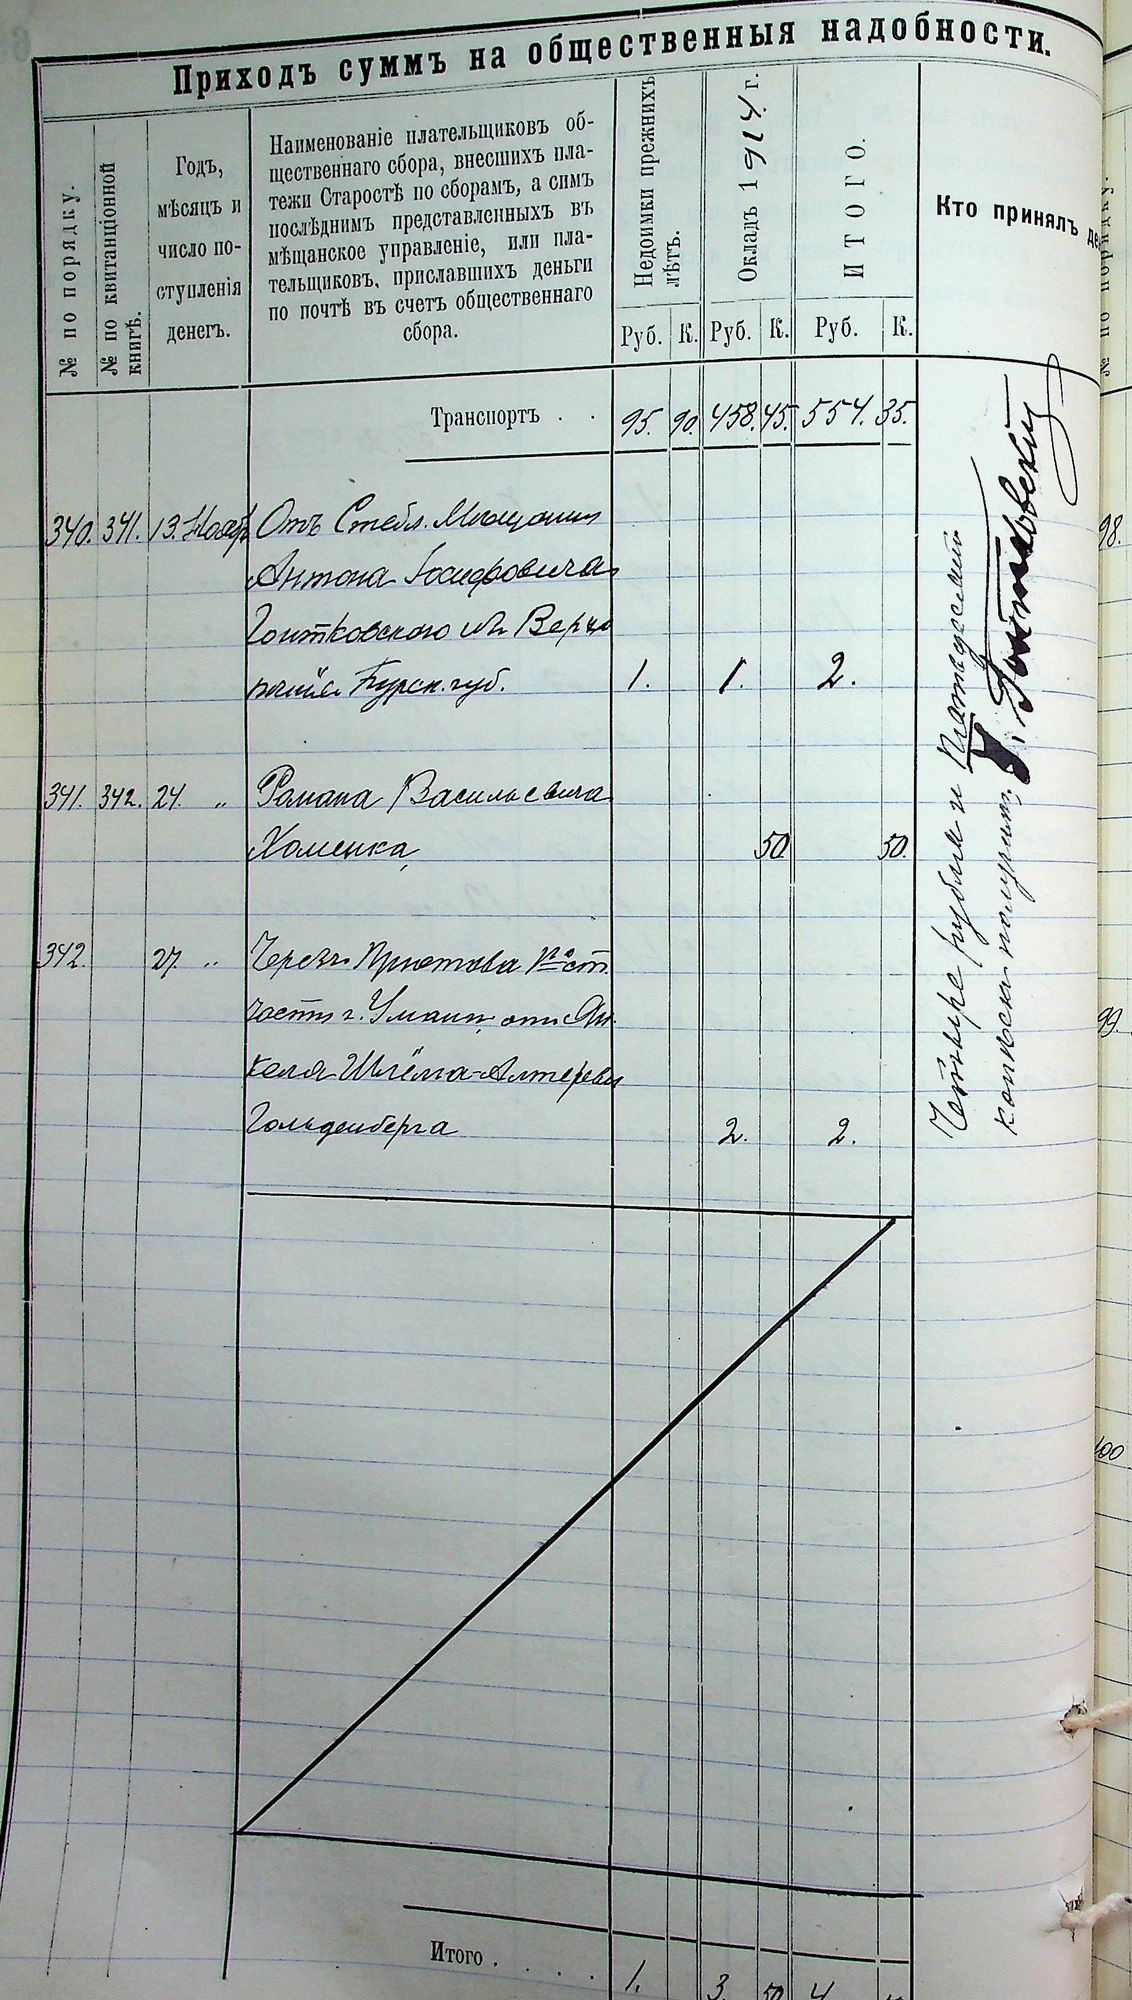 Приходъ суммъ на общественныя надобности.
№ по порядку.
№ по квитанціонной книгѣ.
Годъ,
мѣсяцъ и
число по-
ступленія
денегъ.
Наименованіе плательщиковъ об-
щественнаго сбора, внесшихъ пла-
тежи Старостѣ по сборамъ, а симъ
послѣднимъ представленныхъ въ
мѣщанское управленіе, или пла-
тельщиковъ, приславшихъ деньги
по почтѣ въ счетъ общественнаго
сбора.
Недоимки прежнихъ лѣтъ.
Окладъ 1914 г.
ИТОГО.
Кто принялъ де
Руб. К. Руб. К. Руб. К.
Транспортъ . . 95. 90. 458. 45. 554. 35.
340. 341. 13. Нояб. Отъ Стебл. Мѣщанина
Антона Іосифовича
Гонтковскаго
Курск. губ. 1. 1. 2.
341. 342. 24. " Романа Васильевича
Хоменка 50. 50.
342. 27. " Черезъ Пристава
части г. Умани отъ Ян-
келя Шлёма-Алтерева
Гольденберга 2. 2.
Четыре рубля и Пятьдесятъ
копѣекъ получилъ
Гонтковскій
Итого . . . . 1. 3. 50 4
№ по порядку.
98.
99.
100